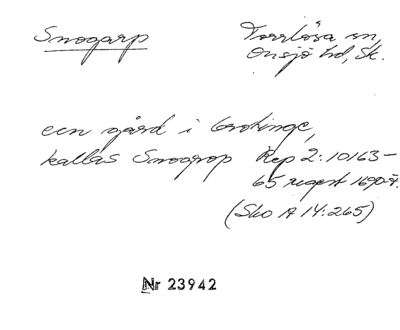 Snogarp
Torrlösa sn,
Onsjö hd, Sk.
een gård i
kallas Snogrop Rep 2:10163-
65 regest 1690-t.
(Sko A 14:265)
Nr 23942